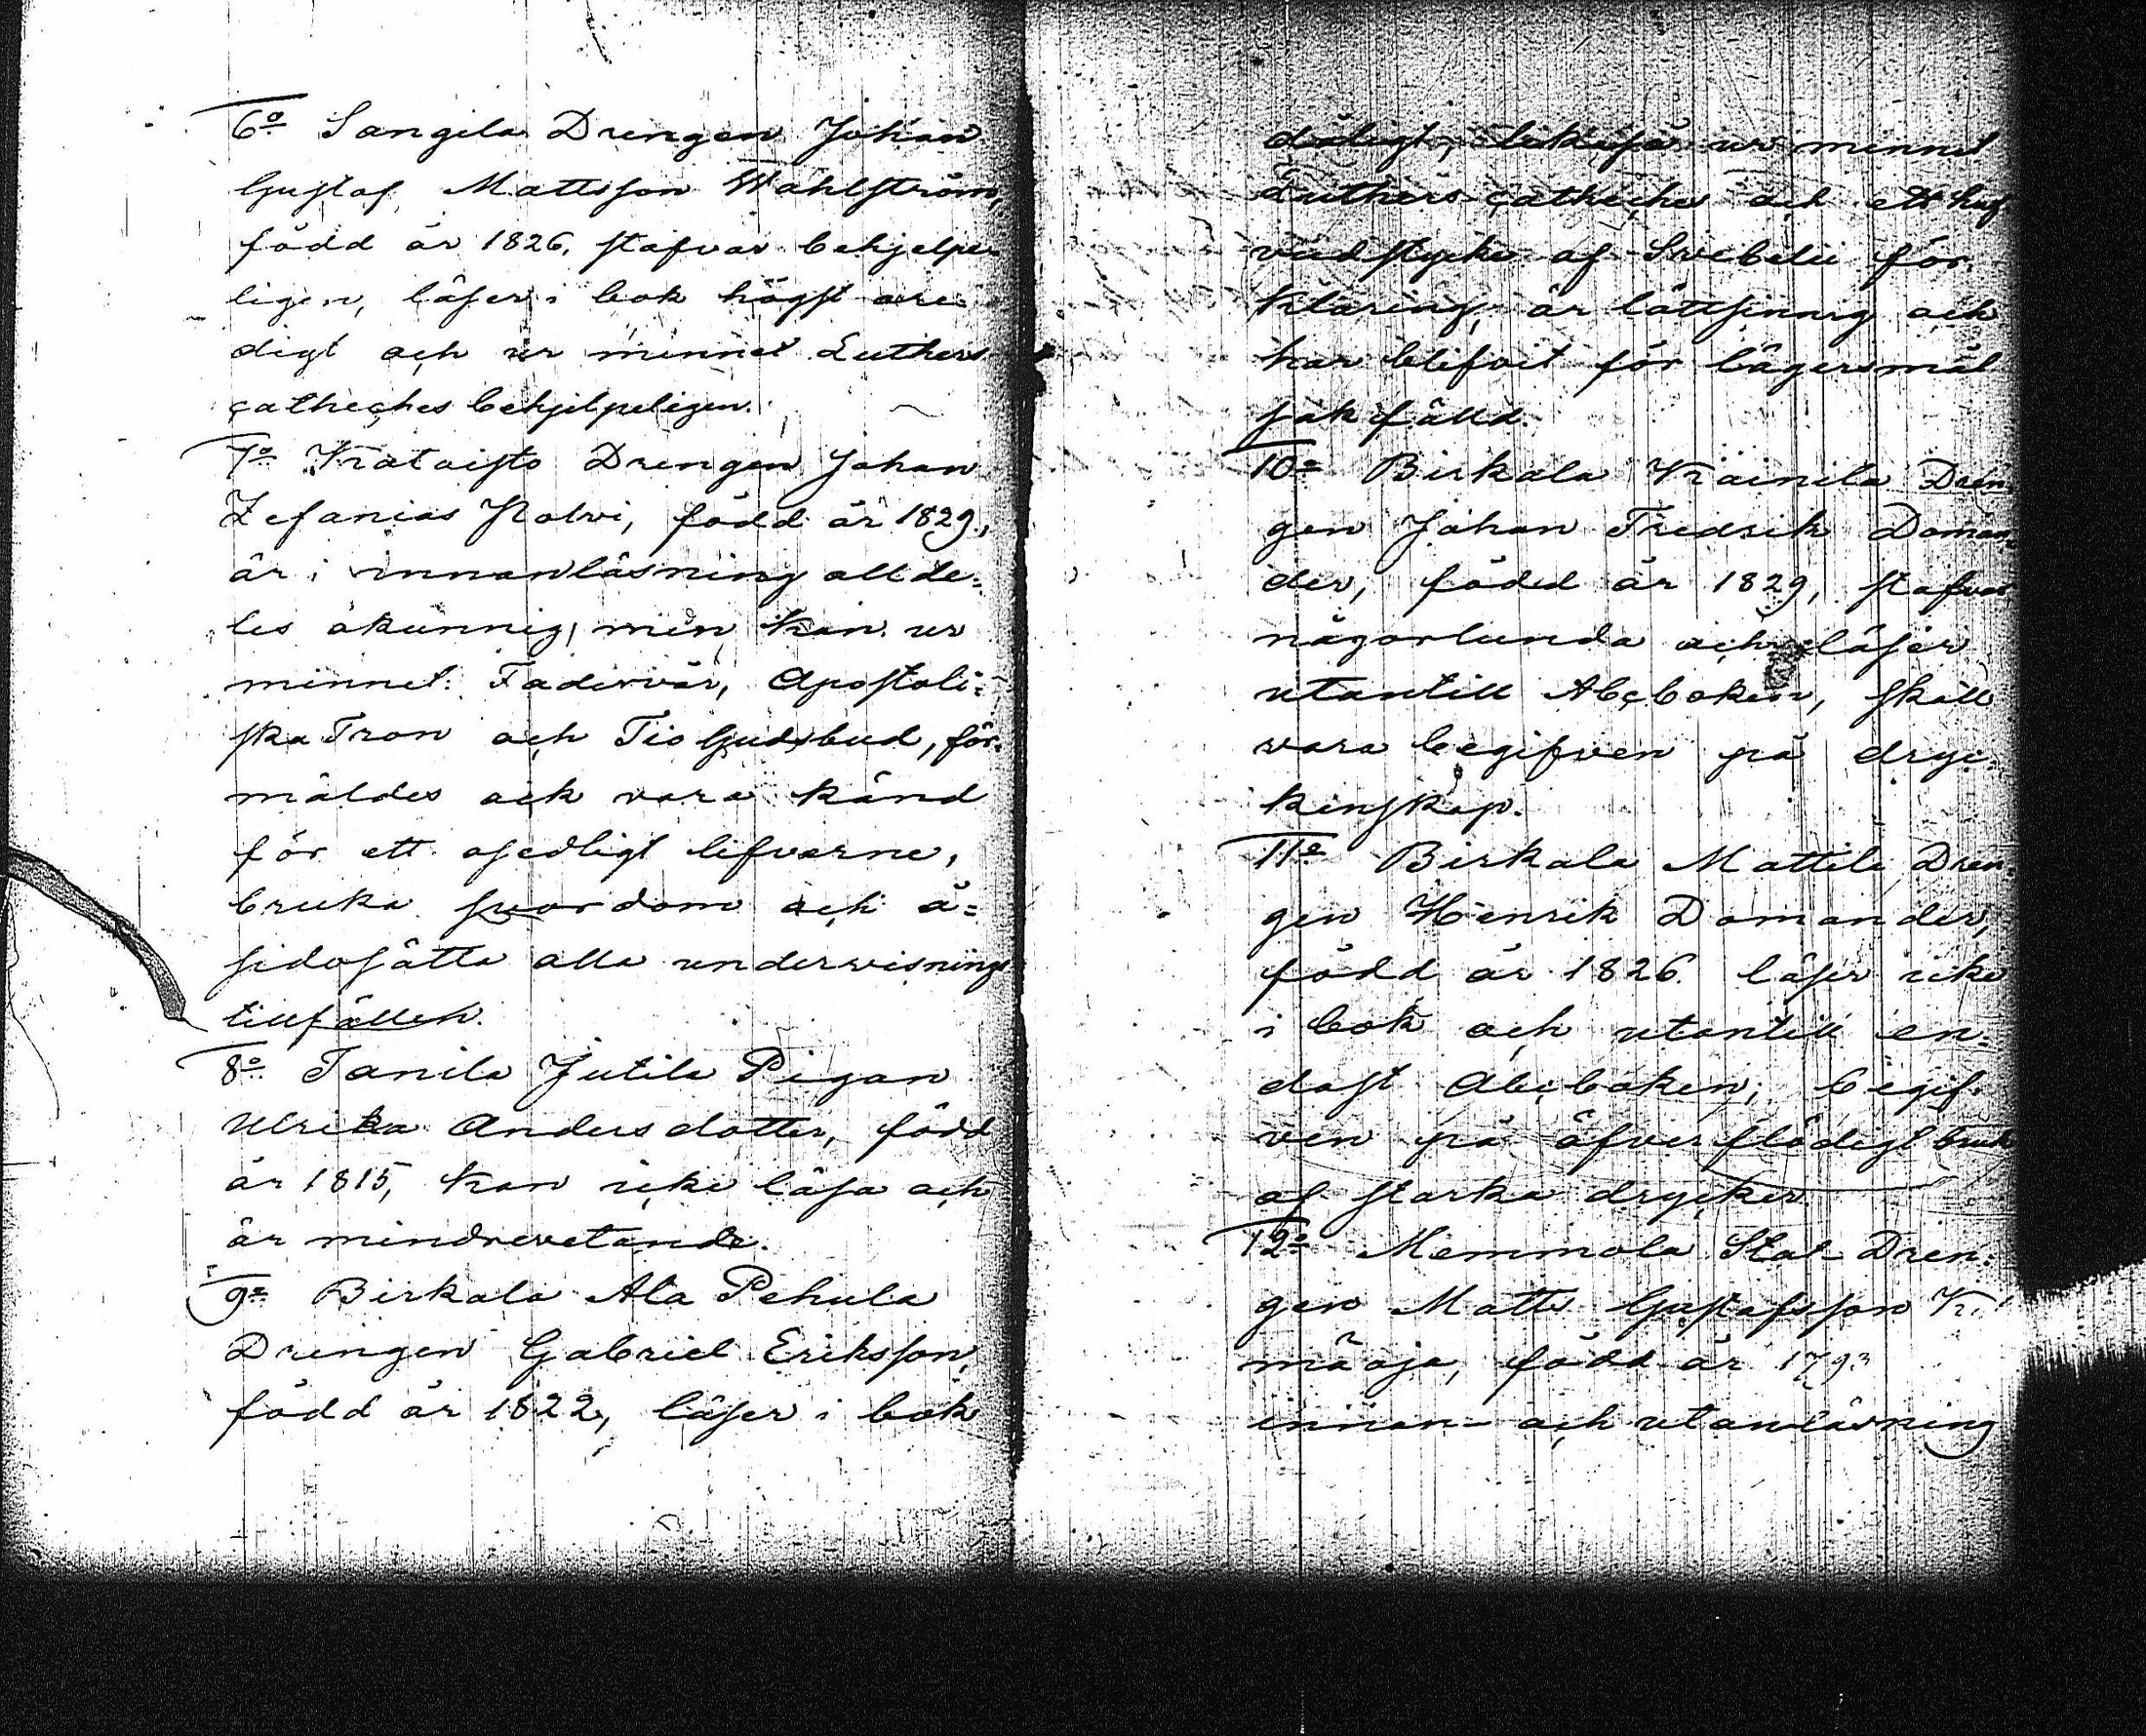 6o Sangila Drengen Johan
Gustaf Mattsson Wahlström,
född år 1826, stafvar behjelpe-
ligen, läser i bok högst ore-
digt och ur minnet Luthers
catheches behjelpeligen.
7o Krataisto Drengen Johan
Zefanias Polvi, född år 1829,
är i innanläsning allde=
les okunnig, men kan ur
minnet: Fadervår, Apostoli=
ska Tron och Tio Gudsbud, för-
mäldes ock vara känd
för ett osedligt lefverne,
bruka svordom och å=
sidosätta alla underwisnings
tillfällen.
8o Tanila Jutila Pigan
Ulrika Andersdotter, född
år 1815, kan icke läsa och
är mindrevetande.
9o Birkala Ala Pehula
Drengen Gabriel Eriksson,
född år 1822, läser i bok
dåligt, likaså ur minnet
Luthers catheches och ett huf
vudstycke af Svebelii för
klaring, är lättsinnig och
har blifvit för lägersmål
sakfälld.
10o Birkala Kräinila Dren
gen Johan Fredrik Doman=
der, född år 1829, stafvar
någorlunda och läser
utantill Abcboken, skall
vara begifven på dryc=
kenskap.
11o Birkala Mattila Dren
gen Henrik Domander,
född år 1826. läser icke
i bok och utantill en=
dast Abcboken; begif-
ven på öfverflödigt bruk
af starka drycker.
12o Memmola Stat Dren=
gen Matts Gustafsson
mäoja, född år 1793
innan- och utanläsning